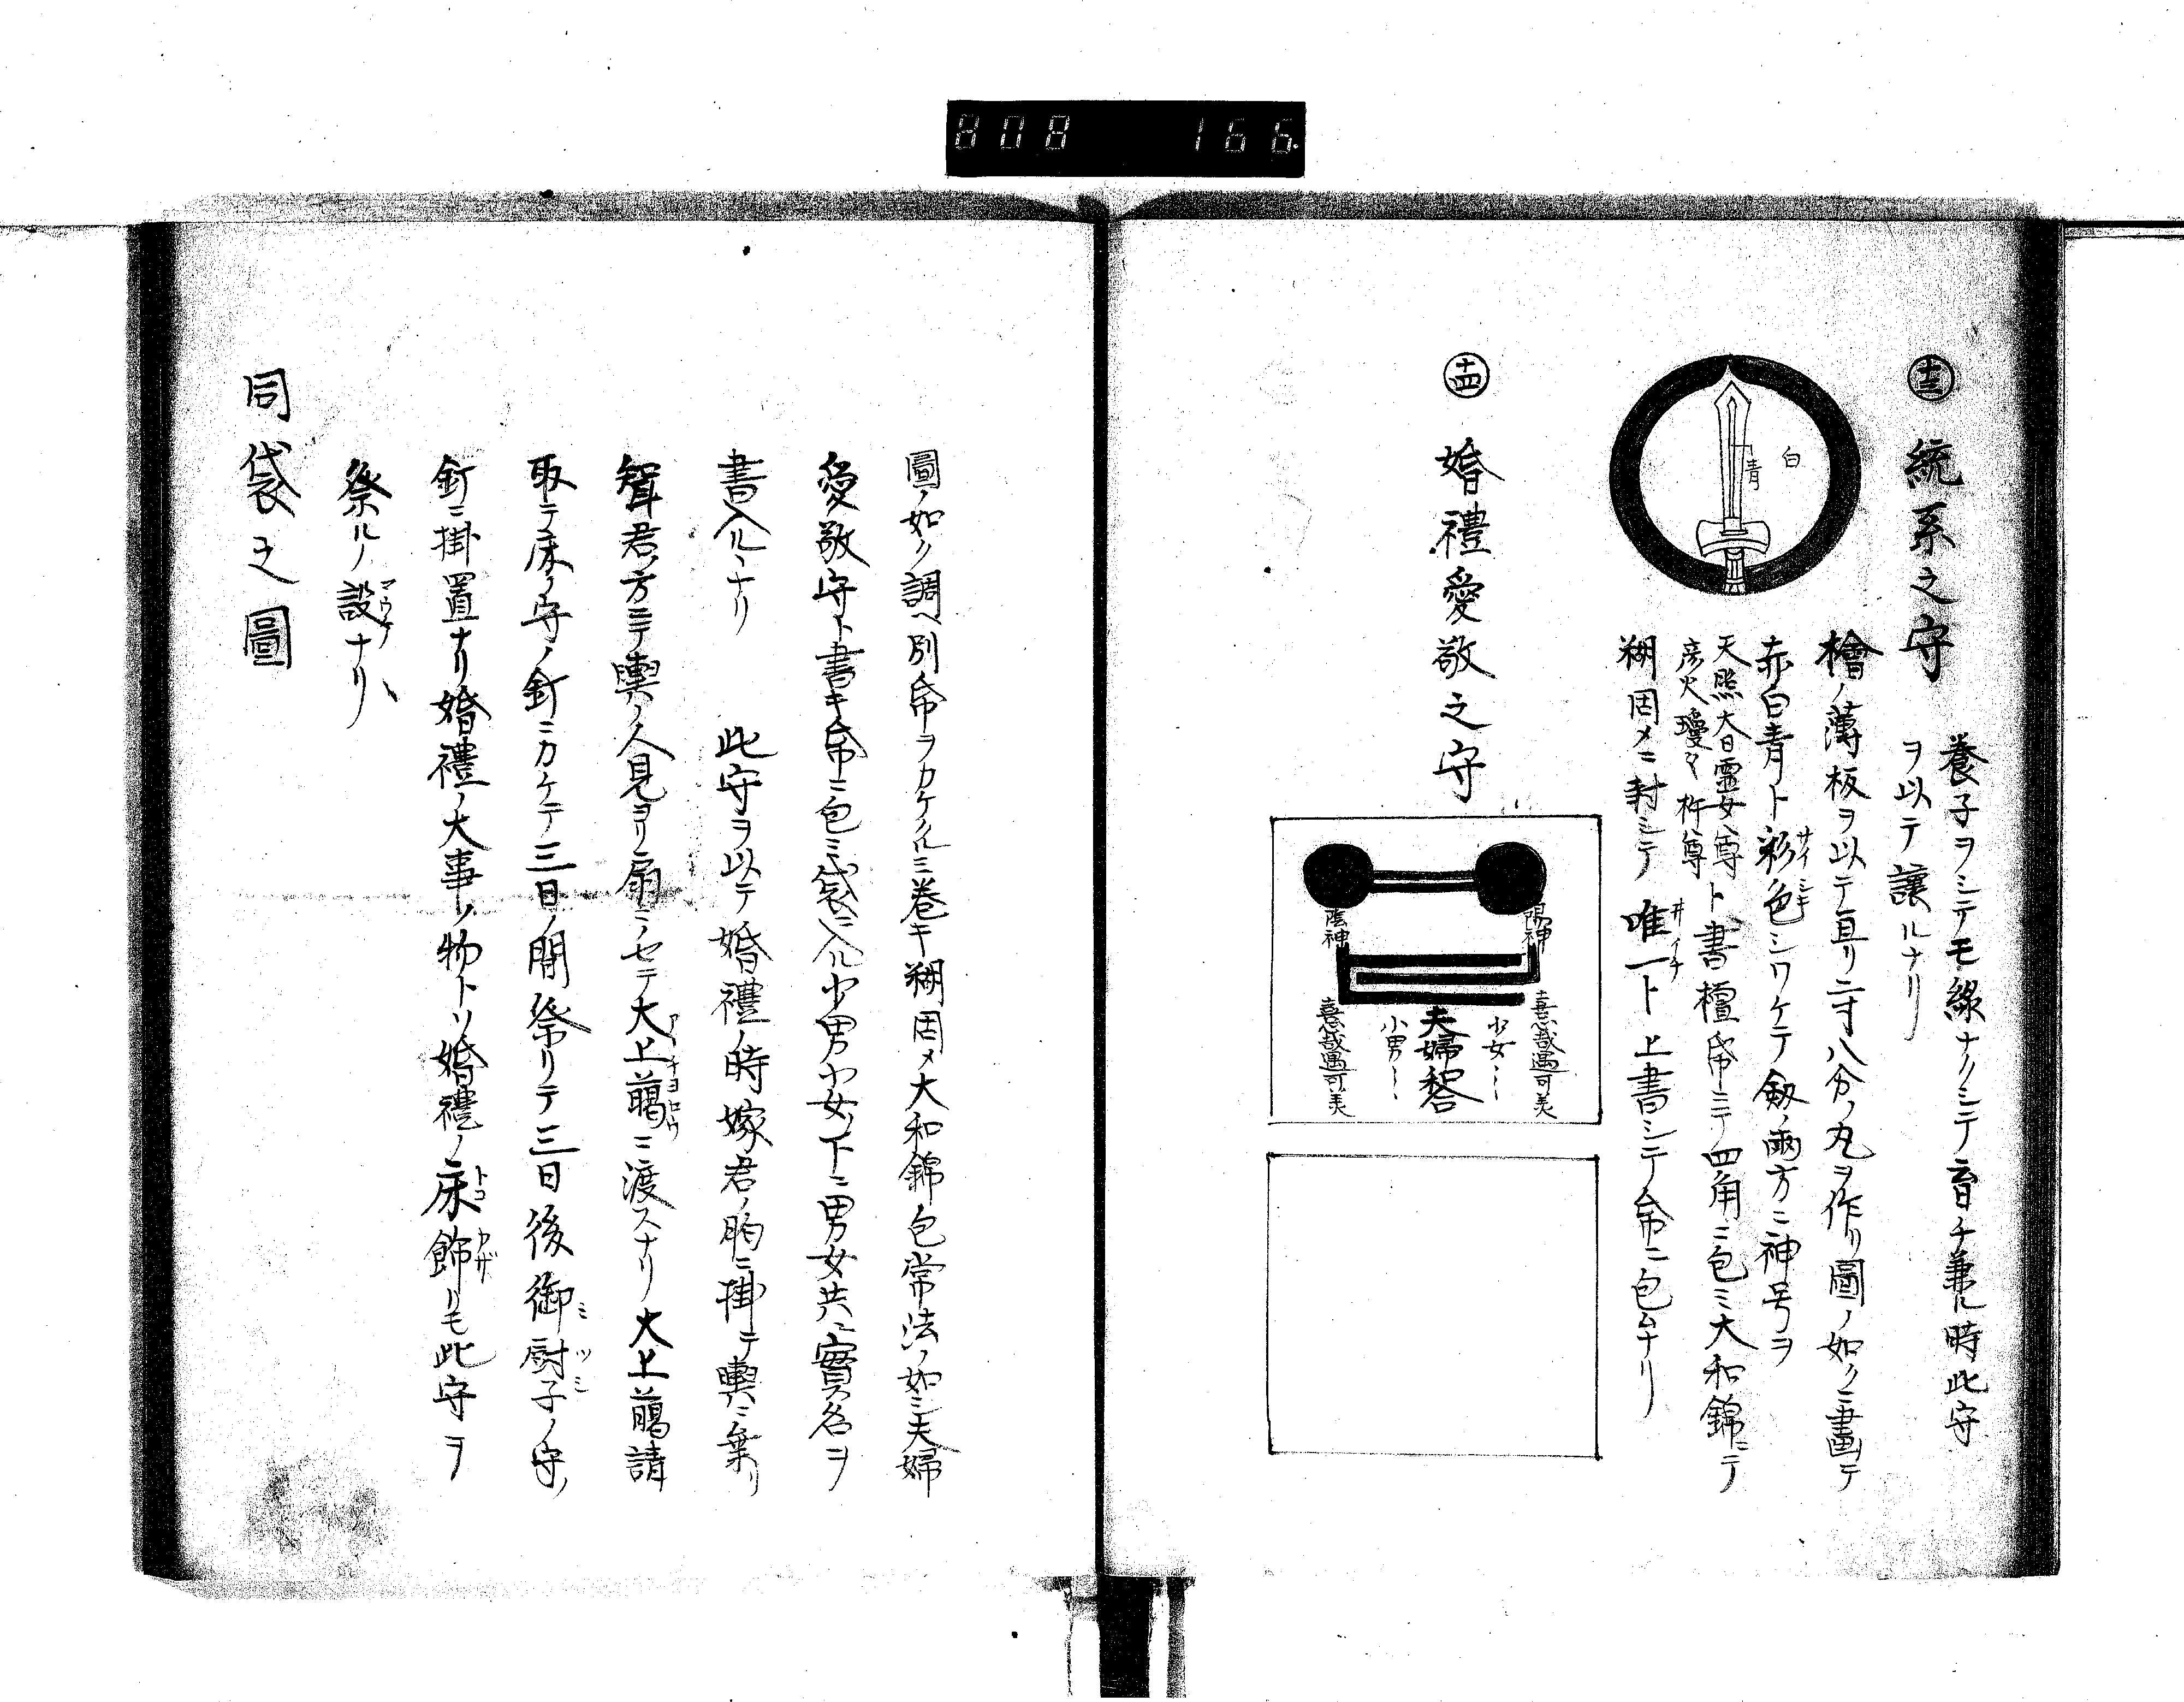 808 166
十三 統系之守
養子ヲシテモ緣ナクシテ育チ兼ル時此守
ヲ以テ讓ルナリ
白
青
檜ノ薄板ヲ以テ亘リ二寸八分ノ丸ヲ作リ圖ノ如クニ畫テ
赤白青ト彩色シワケテ劔ノ兩方ニ神号ヲ
サイシキ
天照大日孁女尊
彦火瓊々杵尊
ト書檀帋ニテ四角ニ包ミ大和錦ニテ
糊固メニ封シテ唯一ト上書シテ帋ニ包ムナリ
井イチ
十四 婚禮愛敬之守
陽神
陰神
喜哉遇可美
少女〻
夫婦和合
小男〻
喜哉遇可美
圖ノ如ク調ヘ別帋ヲカケクルミ巻キ糊固メ大和錦包常法ノ如シ夫婦
愛敬守ト書キ帋ニ包ミ袋ニ入ル少男少女ノ下ニ男女共ニ實名ヲ
書入ルヽナリ 此守ヲ以テ婚禮ノ時嫁君ノ胸ニ掛テ輿ニ乗リ
聟君ノ方ニテ輿ノ人見ヨリ扇ニノセテ大上﨟ニ渡スナリ大上﨟請
取テ床ノ守ノ釘ニカケテ三日ノ間祭リテ三日後御厨子ノ守ノ
ミツシ
釘ニ掛置ナリ婚禮ノ大事ノ物トソ婚禮ノ床飾リモ此守ヲ
トコカザ
祭ルノ設ナリ
マウケ
同袋之圖